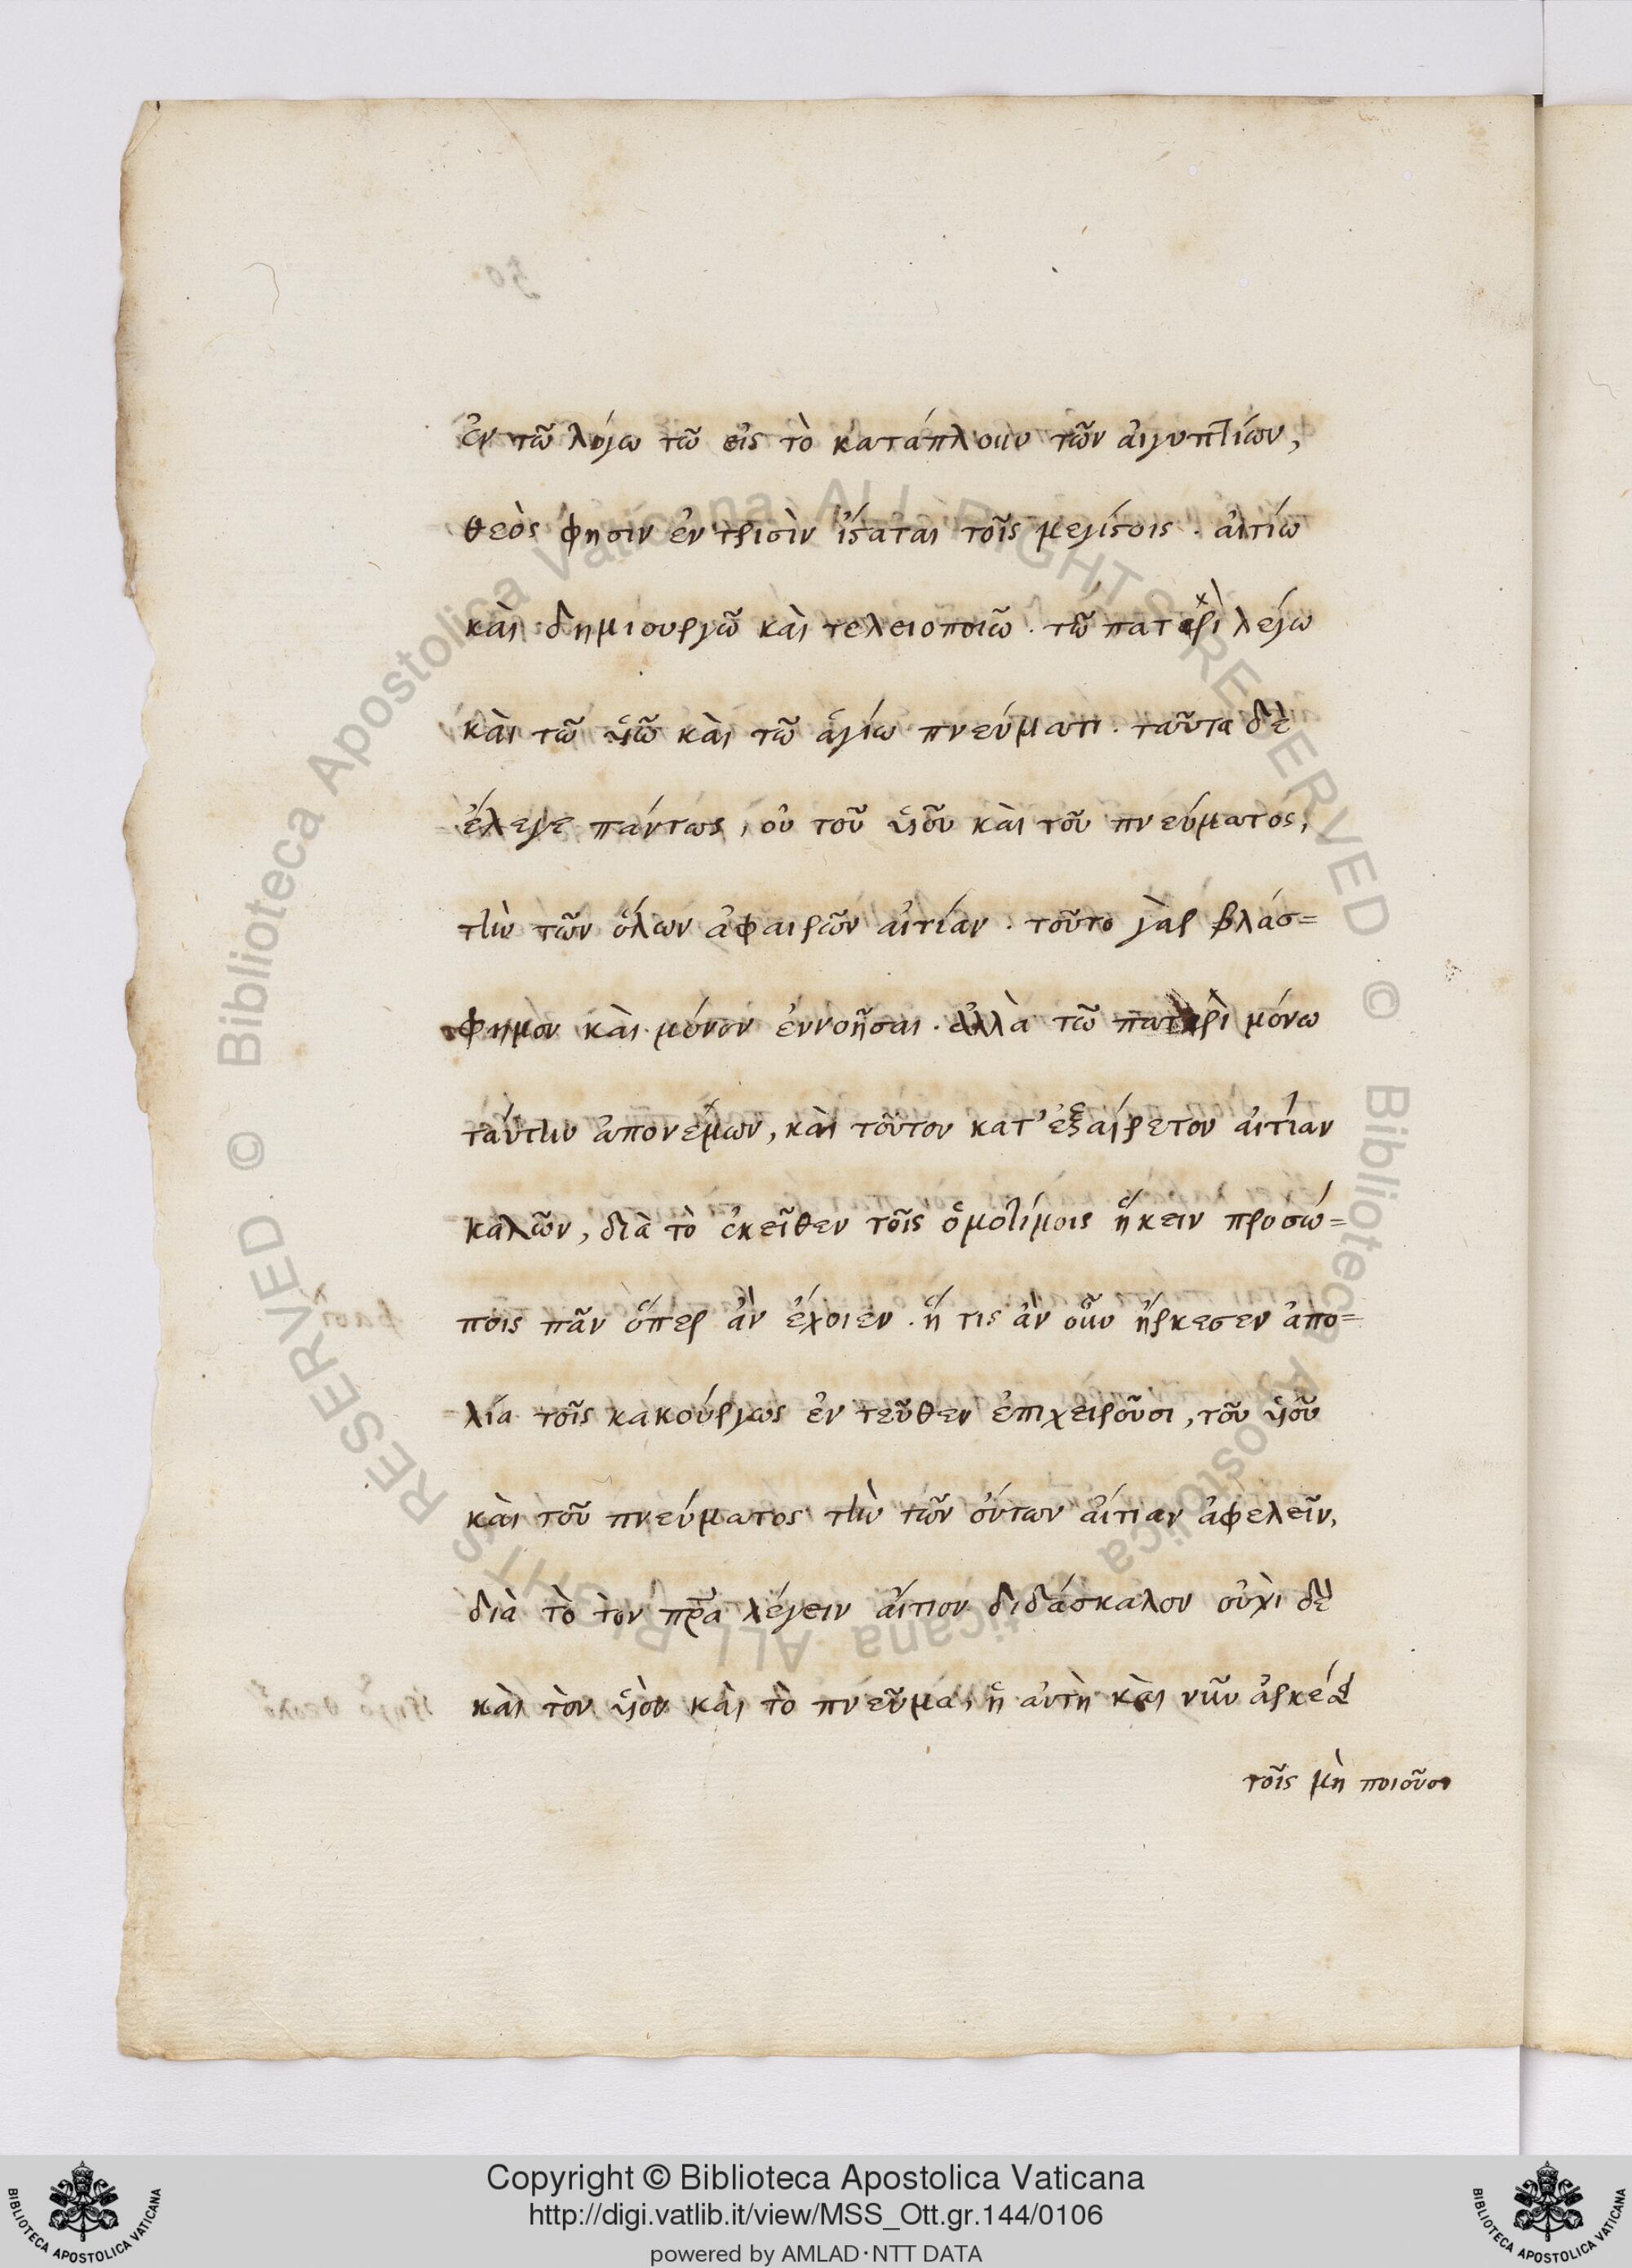 ἐν τῶ λόγω τῶ εἰς τὸ κατάπλουν τῶν αἰγυπτίων,
θεὸς φησιν ἐν τρισὶν ἵσταται τοῖς μεγίστοις . αἰτίω
καὶ δημιουργῶ καὶ τελειοποιῶ . τῶ πατρὶ λέγω
καὶ τῶ υἱῶ καὶ τῶ ἁγίω πνεύματι . ταῦτα δὲ
ἔλεγε πάντως, οὐ τοῦ υἱοῦ καὶ τοῦ πνεύματος,
τὴν τῶν ὅλων ἀφαιρῶν αἰτίαν . τοῦτο γὰρ βλάσ=
φημον καὶ μόνον ἐννοῆσαι . ἀλλὰ τῶ πατρὶ μόνω
ταύτην ἀπονέμων, καὶ τοῦτον κατ' ἐξαίρετον αἰτίαν
καλῶν, διὰ τὸ ἐκεῖθεν τοῖς ὁμοτίμοις ἥκειν προσώ=
ποις πᾶν ὅπερ ἂν ἔχοιεν . ἥ τις ἂν οὖν ἤρκεσεν ἀπο=
λία τοῖς κακούργως ἐν τεῦθεν ἐπιχειροῦσι, τοῦ υἱοῦ
καὶ τοῦ πνεύματος τὴν τῶν ὄντων αἰτίαν ἀφελεῖν,
διὰ τὸ τὸν πρα λέγειν αἴτιον διδάσκαλον οὐχὶ δὲ
καὶ τὸν υἱὸν καὶ τὸ πνεῦμα, ἡ αὐτὴ καὶ νῦν ἀρκέσει
τοῖς μὴ ποιοῦσι
Copyright © Biblioteca Apostolica Vaticana
http://digi.vatlib.it/view/MSS_Ott.gr.144/0106
powered by AMLAD·NTT DATA
BIBLIOTECA APOSTOLICA VATICANA
BIBLIOTECA APOSTOLICA VATICANA
© Biblioteca Apostolica Vaticana ALL RIGHTS RESERVED
© Biblioteca Apostolica Vaticana ALL RIGHTS RESERVED